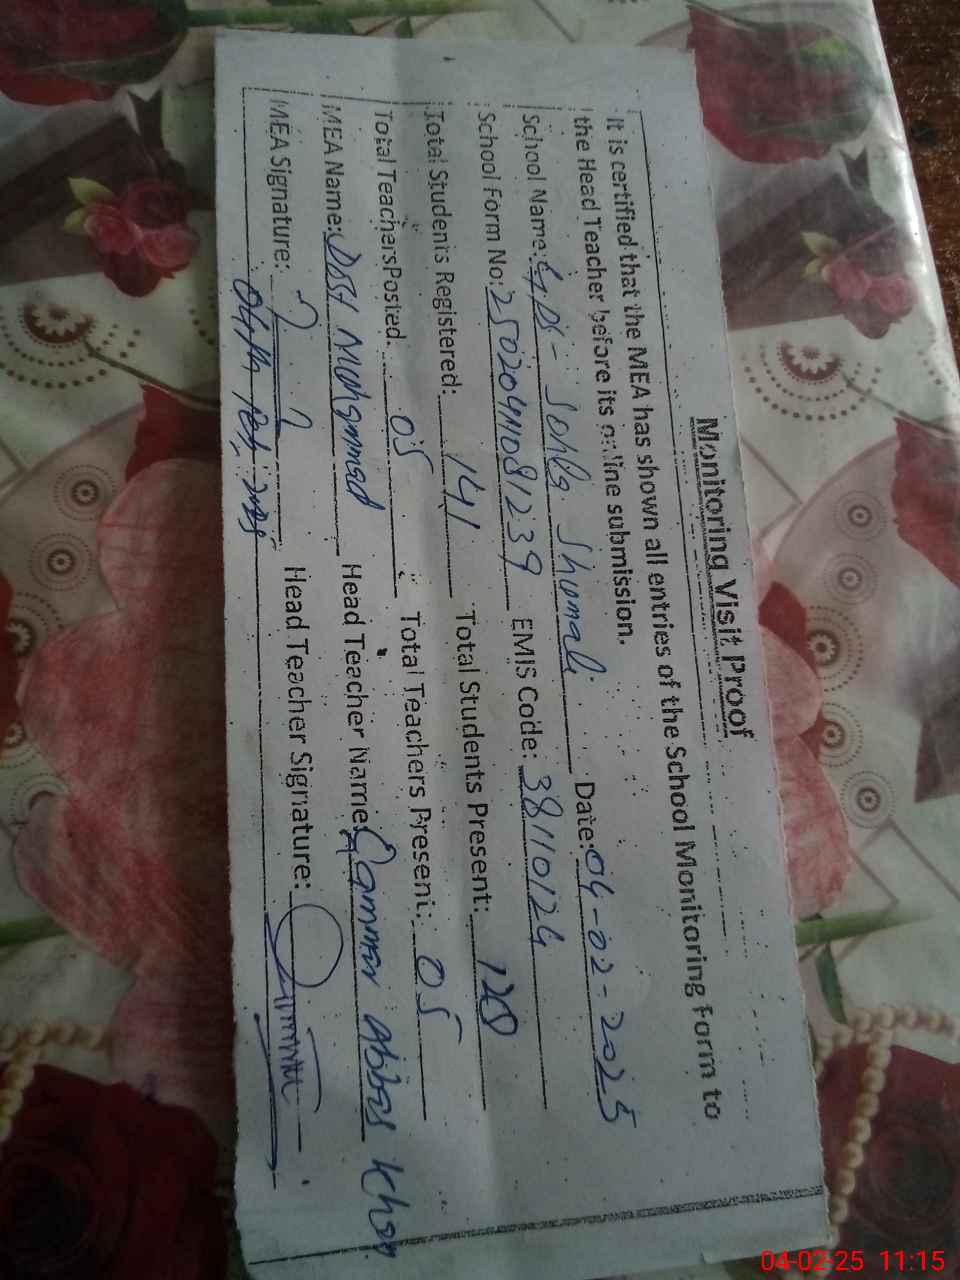 Monitoring Visit Proof
It is certified that the MEA has shown all entries of the School Monitoring Form to
the Head Teacher before its online submission.
School Name: GPS - Sohla Shumali Date: 04-02-2025
School Form No: 2502041081239 EMIS Code: 38110124
Total Students Registered: 141 Total Students Present: 120
Total Teachers Posted. 05 Total Teachers Present: 05
MEA Name: Dost Muhammad Head Teacher Name: Qamar abbas Khan
MEA Signature: Head Teacher Signature:
04th Feb, 2025
04-02-25 11:15